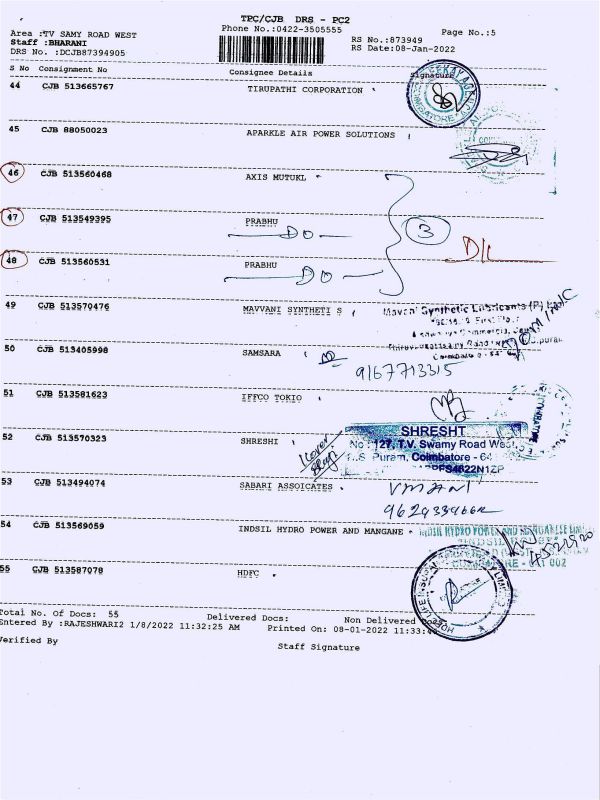 TPC/CJB DRS - PC2
Phone No.:0422-3505555
Page No.:5
Area :TV SAMY ROAD WEST
Staff :BHARANI
DRS No. :DCJB87394905
RS No.:873949
RS Date:08-Jan-2022
S No Consignment No Consignee Details Signature
44 CJB 513665767 TIRUPATHI CORPORATION
COIMBATORE
45 CJB 88050023 APARKLE AIR POWER SOLUTIONS
46 CJB 513560468 AXIS MUTUKL
47 CJB 513549395 PRABHU
DO
3
48 CJB 513560531 PRABHU
DO
49 CJB 513570476 MAVVANI SYNTHETI S
Mavani Synthetic Lubricants (P)
50 CJB 513405998 SAMSARA
9167713315
51 CJB 513581623 IFFCO TOKIO
52 CJB 513570323 SHRESHI
SHRESHT
No : 127, T.V. Swamy Road West,
R.S. Puram, Coimbatore - 64
53 CJB 513494074 SABARI ASSOICATES
VMANI
54 CJB 513569059 INDSIL HYDRO POWER AND MANGANE
INDSIL HYDRO POWER AND MANGANESE LIMI
55 CJB 513587078 HDFC
Total No. Of Docs: 55 Delivered Docs: Non Delivered Docs
Entered By :RAJESHWARI2 1/8/2022 11:32:25 AM Printed On: 08-01-2022 11:33:4
Verified By Staff Signature